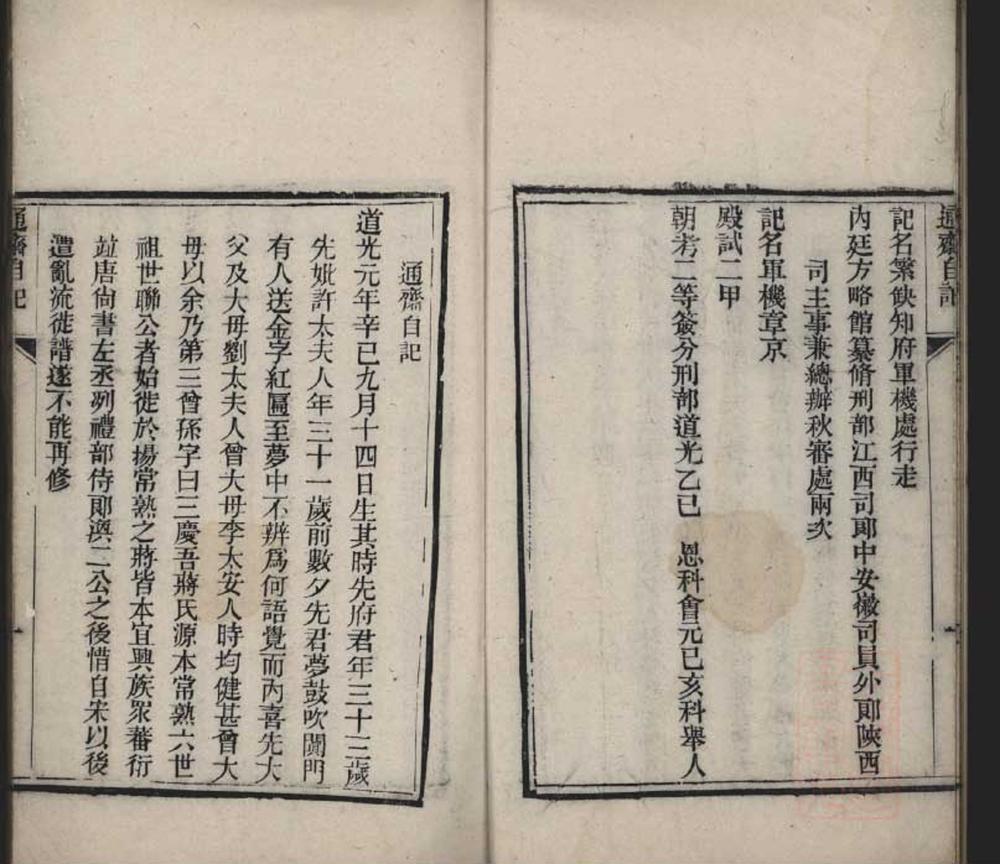 通齋自記
記名繁缺知府軍機處行走
內廷方略館纂脩刑部江西司郎中安徽司員外郎陝西
司主事兼總辦秋審處兩次
記名軍機章京
殿試二甲
朝考二等簽分刑部道光乙巳 恩科會元己亥科舉人
通齋自記
道光元年辛巳九月十四日生其時先府君年三十三歲
先妣許太夫人年三十一歲前數夕先君夢鼓吹闐門
有人送金字紅匾至夢中不辨爲何語覺而內喜先大
父及大母劉太夫人曾大母李太安人時均健甚曾大
母以余乃第三曾孫字曰三慶吾蔣氏源本常熟六世
祖世聯公者始徙於揚常熟之蔣皆本宜興族眾蕃衍
並唐尚書左丞列禮部侍郎渙二公之後惜自宋以後
遭亂流徙譜遂不能再修
通齋自記
一